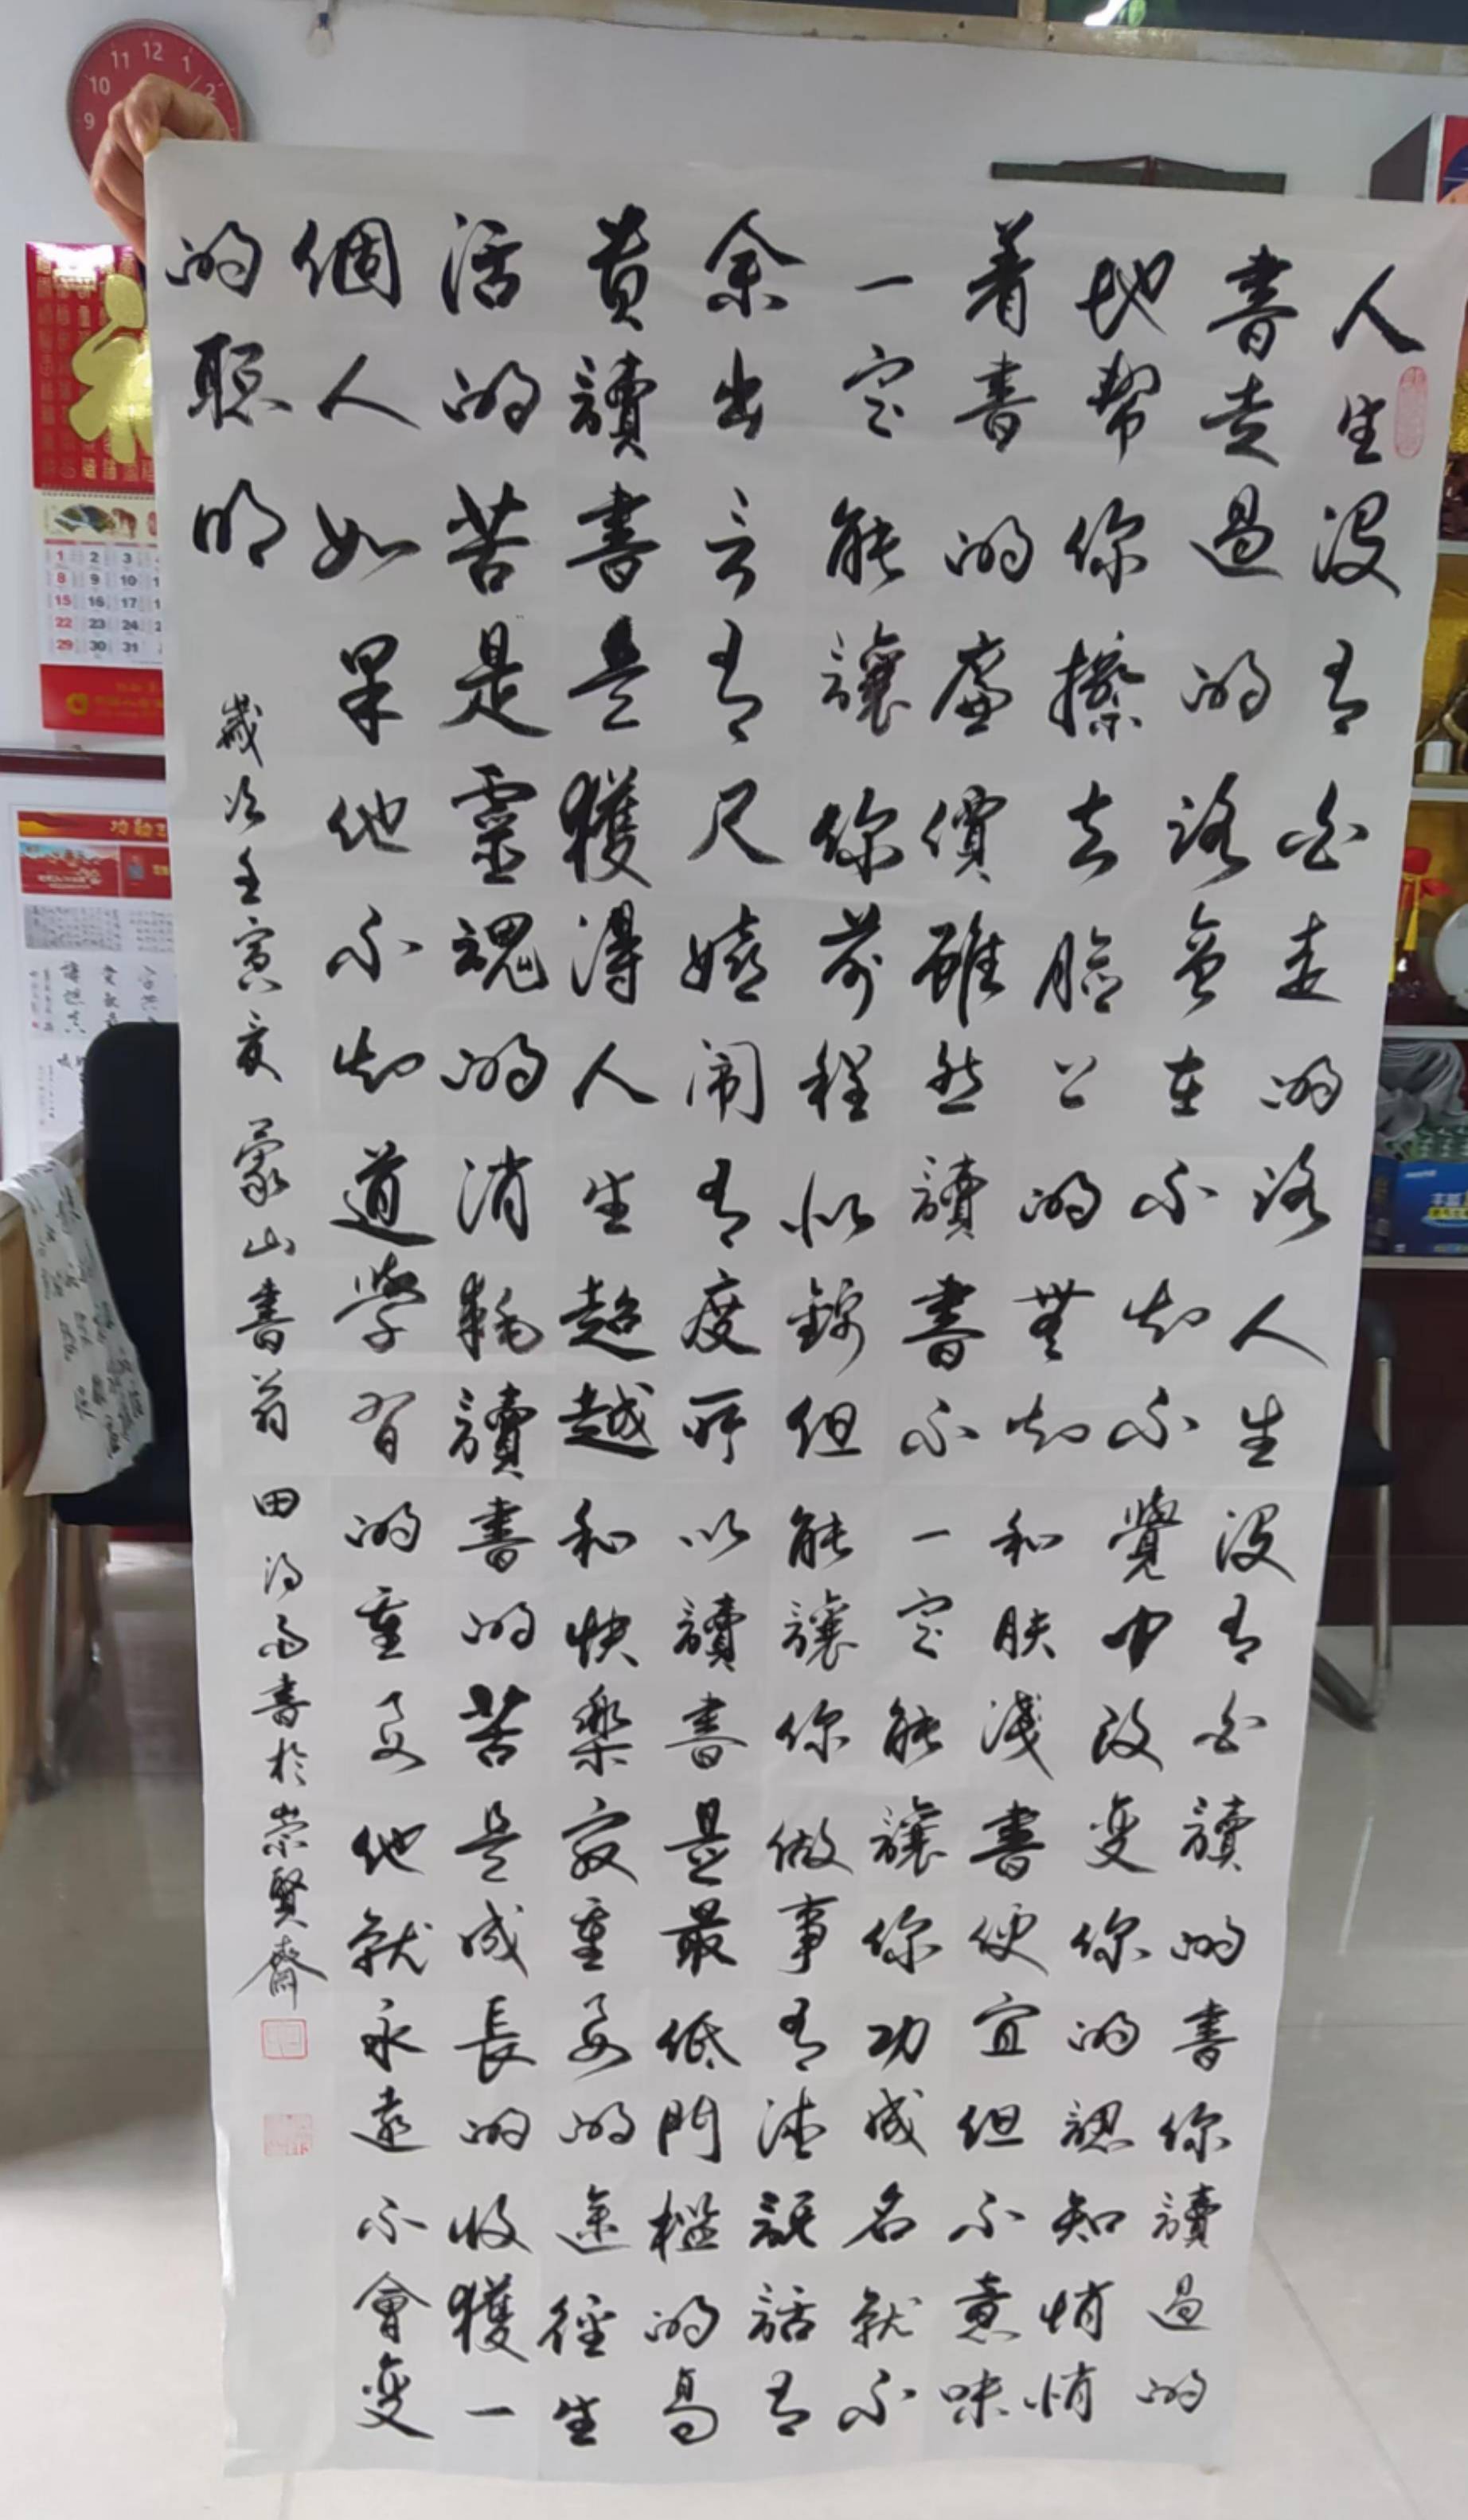 人生沒有白走的路人生沒有白讀的書你讀過的
書走過的路會在不知不覺中改變你的認知悄悄
地幫你擦去臉上的無知和膚淺書便宜但不意味
着書的廉價雖然讀書不一定能讓你功成名就不
一定能讓你前程似錦但能讓你做事有德說話有
余出言有尺嬉闹有度所以讀書是最低門檻的高
貴讀書是獲得人生超越和快樂最重要的途徑生
活的苦是靈魂的消耗讀書的苦是成長的收獲一
個人如果他不知道學習的重要他就永遠不會變
的聰明
歲次壬寅夏 蒙山書翁 田 書於崇賢齋
9 10 11 12 1 2
1 2 3
8 9 10
15 16 17
22 23 24
29 30 31